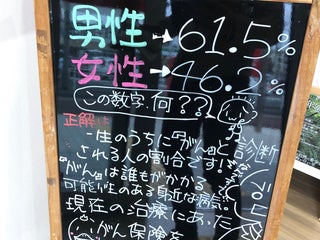 男性→61.5%
女性→46.2%
この数字、何??
正解は
一生のうちに『がん』と診断
される人の割合です!
『がん』は誰もがかかる
可能性のある身近な病気!
現在の治療にあった
がん保険を